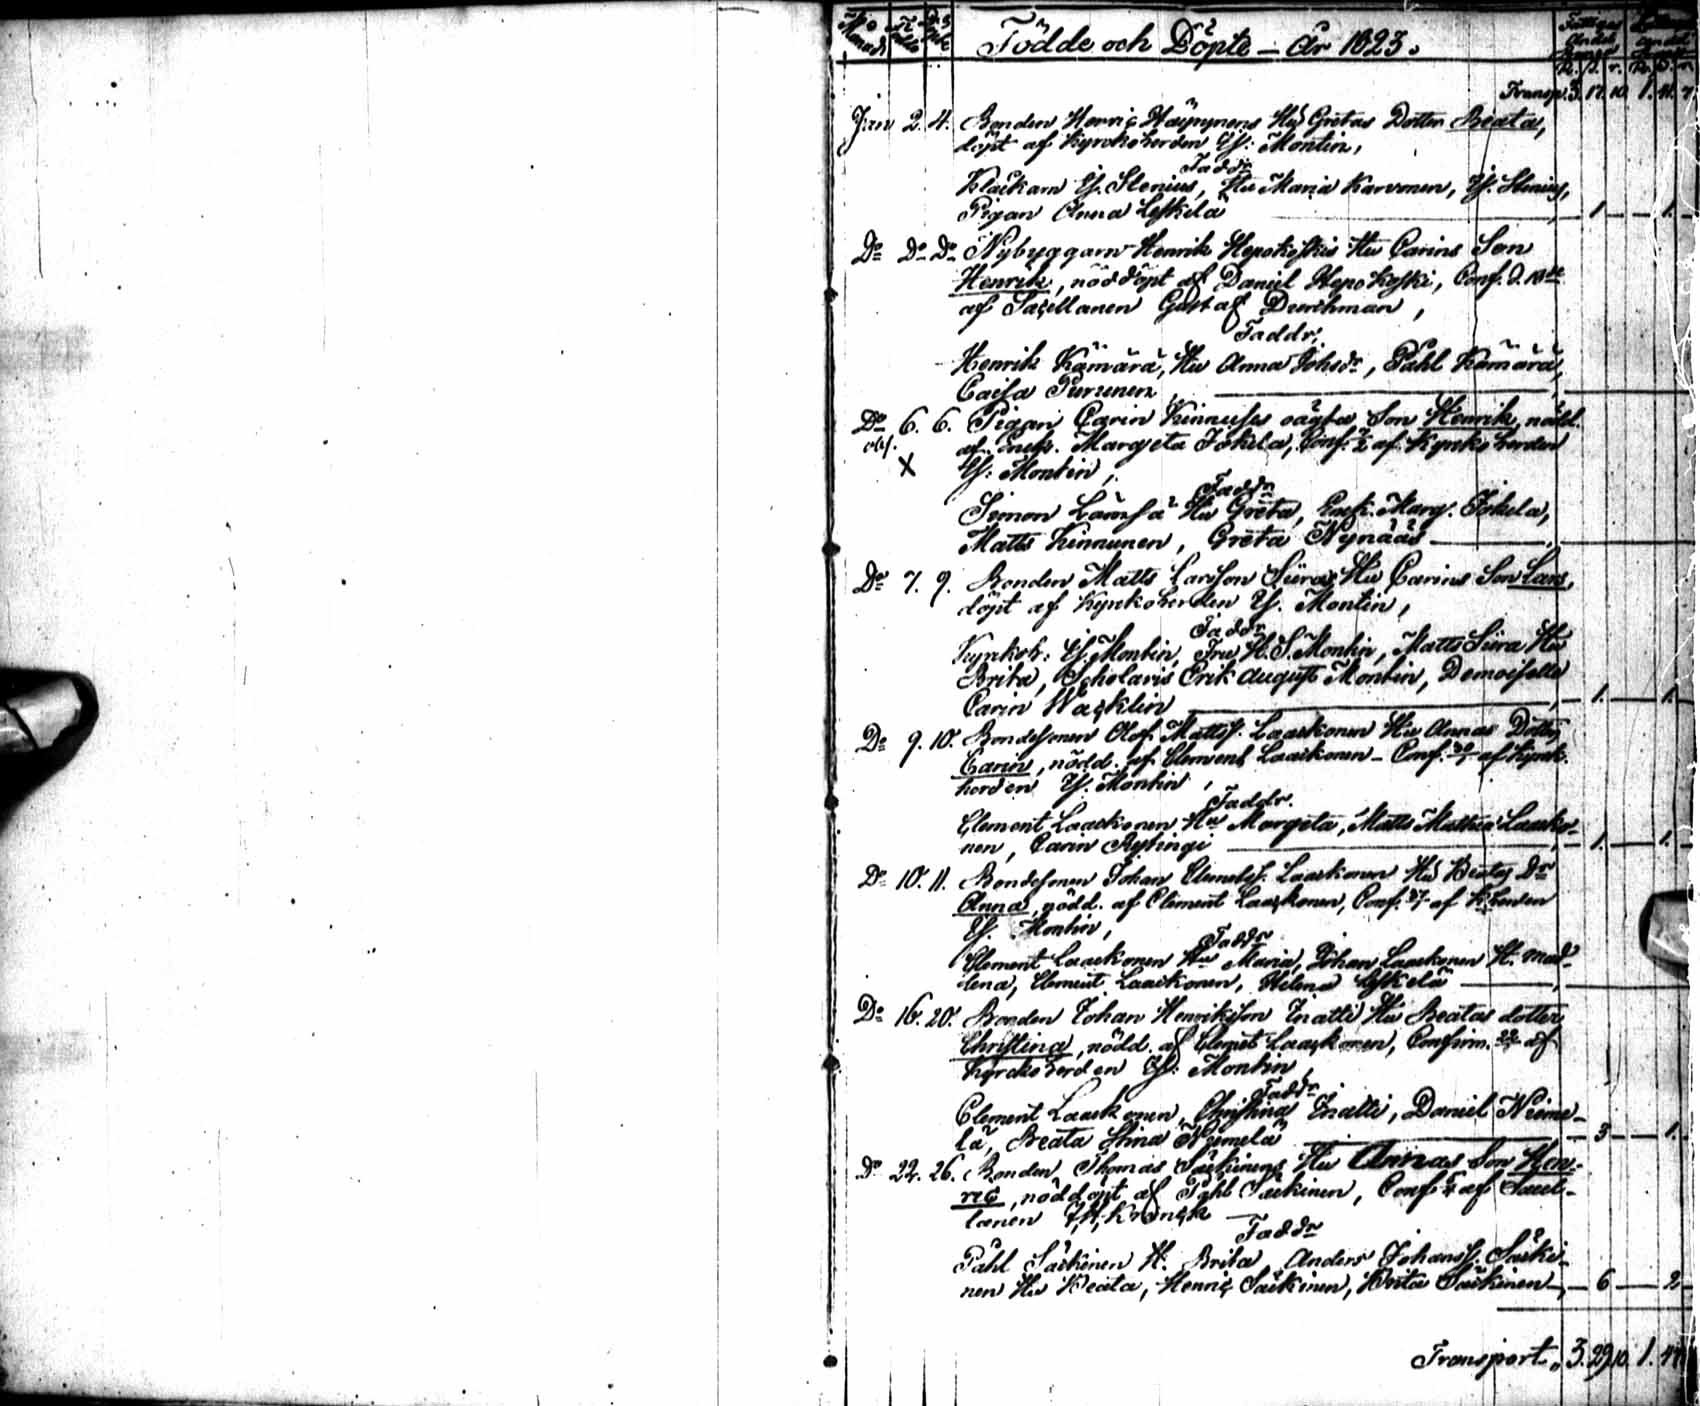 Födde och Döpte – År 1823.
Transp. 3. 17. 10. 1. 41.
Jan 2. 4. Bonden Henric Häyrynens Hu Gretas Dotter Beata,
döpt af Kyrkoherden Montin,
Faddr
Klåckarn Stenius, Hu Maria Karvonen, Stenius,
Pigan Anna Leskelä 1 1.
Do Do Do Nybyggarn Henrik Hepokoskis Hu Carins Son
Henrik, nöddöpt af Daniel Hepokoski, Conf. d.
af Sacellanen Gustaf Durchman,
Faddr.
Henrik Kämärä, Hu Anna Johsdr, Påhl Kämärä,
Caisa Turunen
Do 6. 6. Pigan Carin Kinnuses oägta Son Henrik, nödd.
X af Margeta Jokela, Conf. af Kyrkoherden
Montin,
Faddr
Simon Lämsä Hu Greta, Marg. Jokela,
Matts Kinnunen, Greta Nynääs
Do 7. 9. Bonden Matts Larsson Siiras Hu Carins Son Lars,
döpt af Kyrkoherden Montin,
Faddr
Kyrkoh: Montin, Fru H. S. Montin, Matts Siira Hu
Brita, Scholaris Erik August Montin, Demoiselle
Carin Wacklin 1. 1.
Do 9. 10. Bondesonen Olof Mattss. Laaskonen Hu Annas Dotter
Carin, nödd. af Clement Laaskonen – Conf. af Kyrk.
herden Montin,
Faddr.
Clement Laaskonen Hu Margeta, Matts Laasko-
nen, Carin 1. 1.
Do 10. 11. Bondesonen Johan Laaskonen Hu Beatas Dr
Anna, nödd. af Clement Laaskonen, Conf. af K.herden
Montin,
Faddr
Clement Laaskonen Hu Maria, Johan Laaskonen H. Mad-
lena, Clement Laaskonen, Helena Leskelä
Do 16. 20. Bonden Johan Henriksson Inatti Hu Beatas dotter
Christina, nödd. af Clement Laaskonen, Confirm. af
Kyrckoherden Montin
Faddr
Clement Laaskonen, Christina Inatti, Daniel Nieme-
lä, Beata Stina Niemelä 3 1.
Do 22. 26. Bonden Thomas Säckinens Hu Annas Son Hen-
ric, nöddöpt af Påhl Säckinen, Conf. af Sacel-
lanen Kranck
Faddr
Påhl Säckinen H. Brita Anders Johanss. Säcki-
nen Hu Beata, Henric Säckinen, Brita Säckinen 6 2
Transport 3. 29. 10. 1.